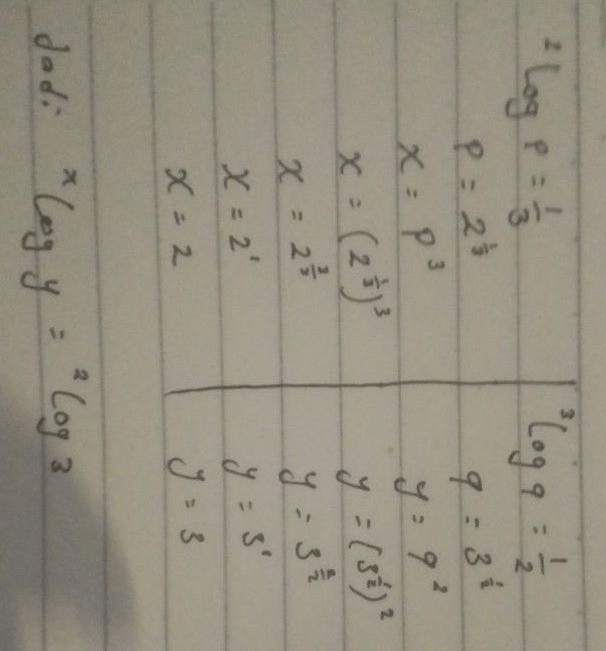 ²log p = 1/3
p = 2^{1/3}
x = p³
x = (2^{1/3})³
x = 2^{3/3}
x = 2¹
x = 2
³log q = 1/2
q = 3^{1/2}
y = q²
y = (3^{1/2})²
y = 3^{2/2}
y = 3¹
y = 3
Jadi ˣlog y = ²log 3